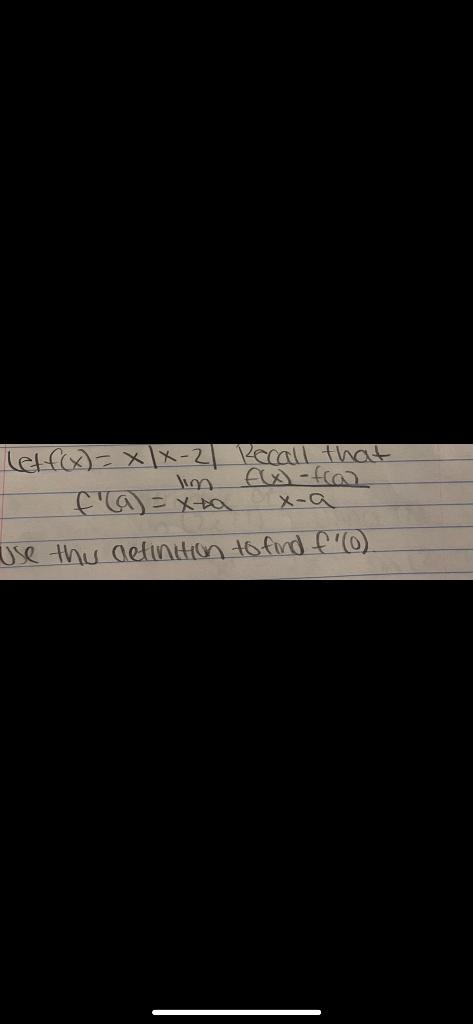 Let f(x) = x|x-2| Recall that
f'(a) = lim x→a f(x) - f(a) / x-a
Use this definition to find f'(0)